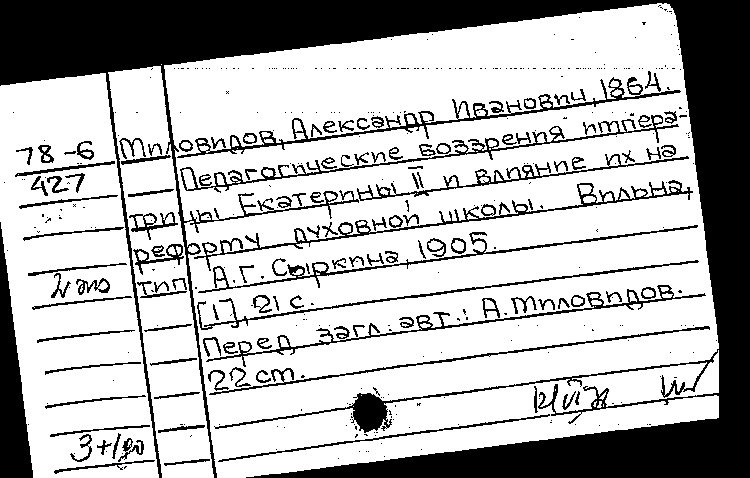 78-6 Миловидов, Александр Иванович, 1864.
427 Педагогические воззрения импера-
трицы Екатерины II и влияние их на
реформу духовной школы. Вильна,
тип. А.Г. Сыркина, 1905.
[1], 21 с.
Перед загл. авт.: А. Миловидов.
22 cm.